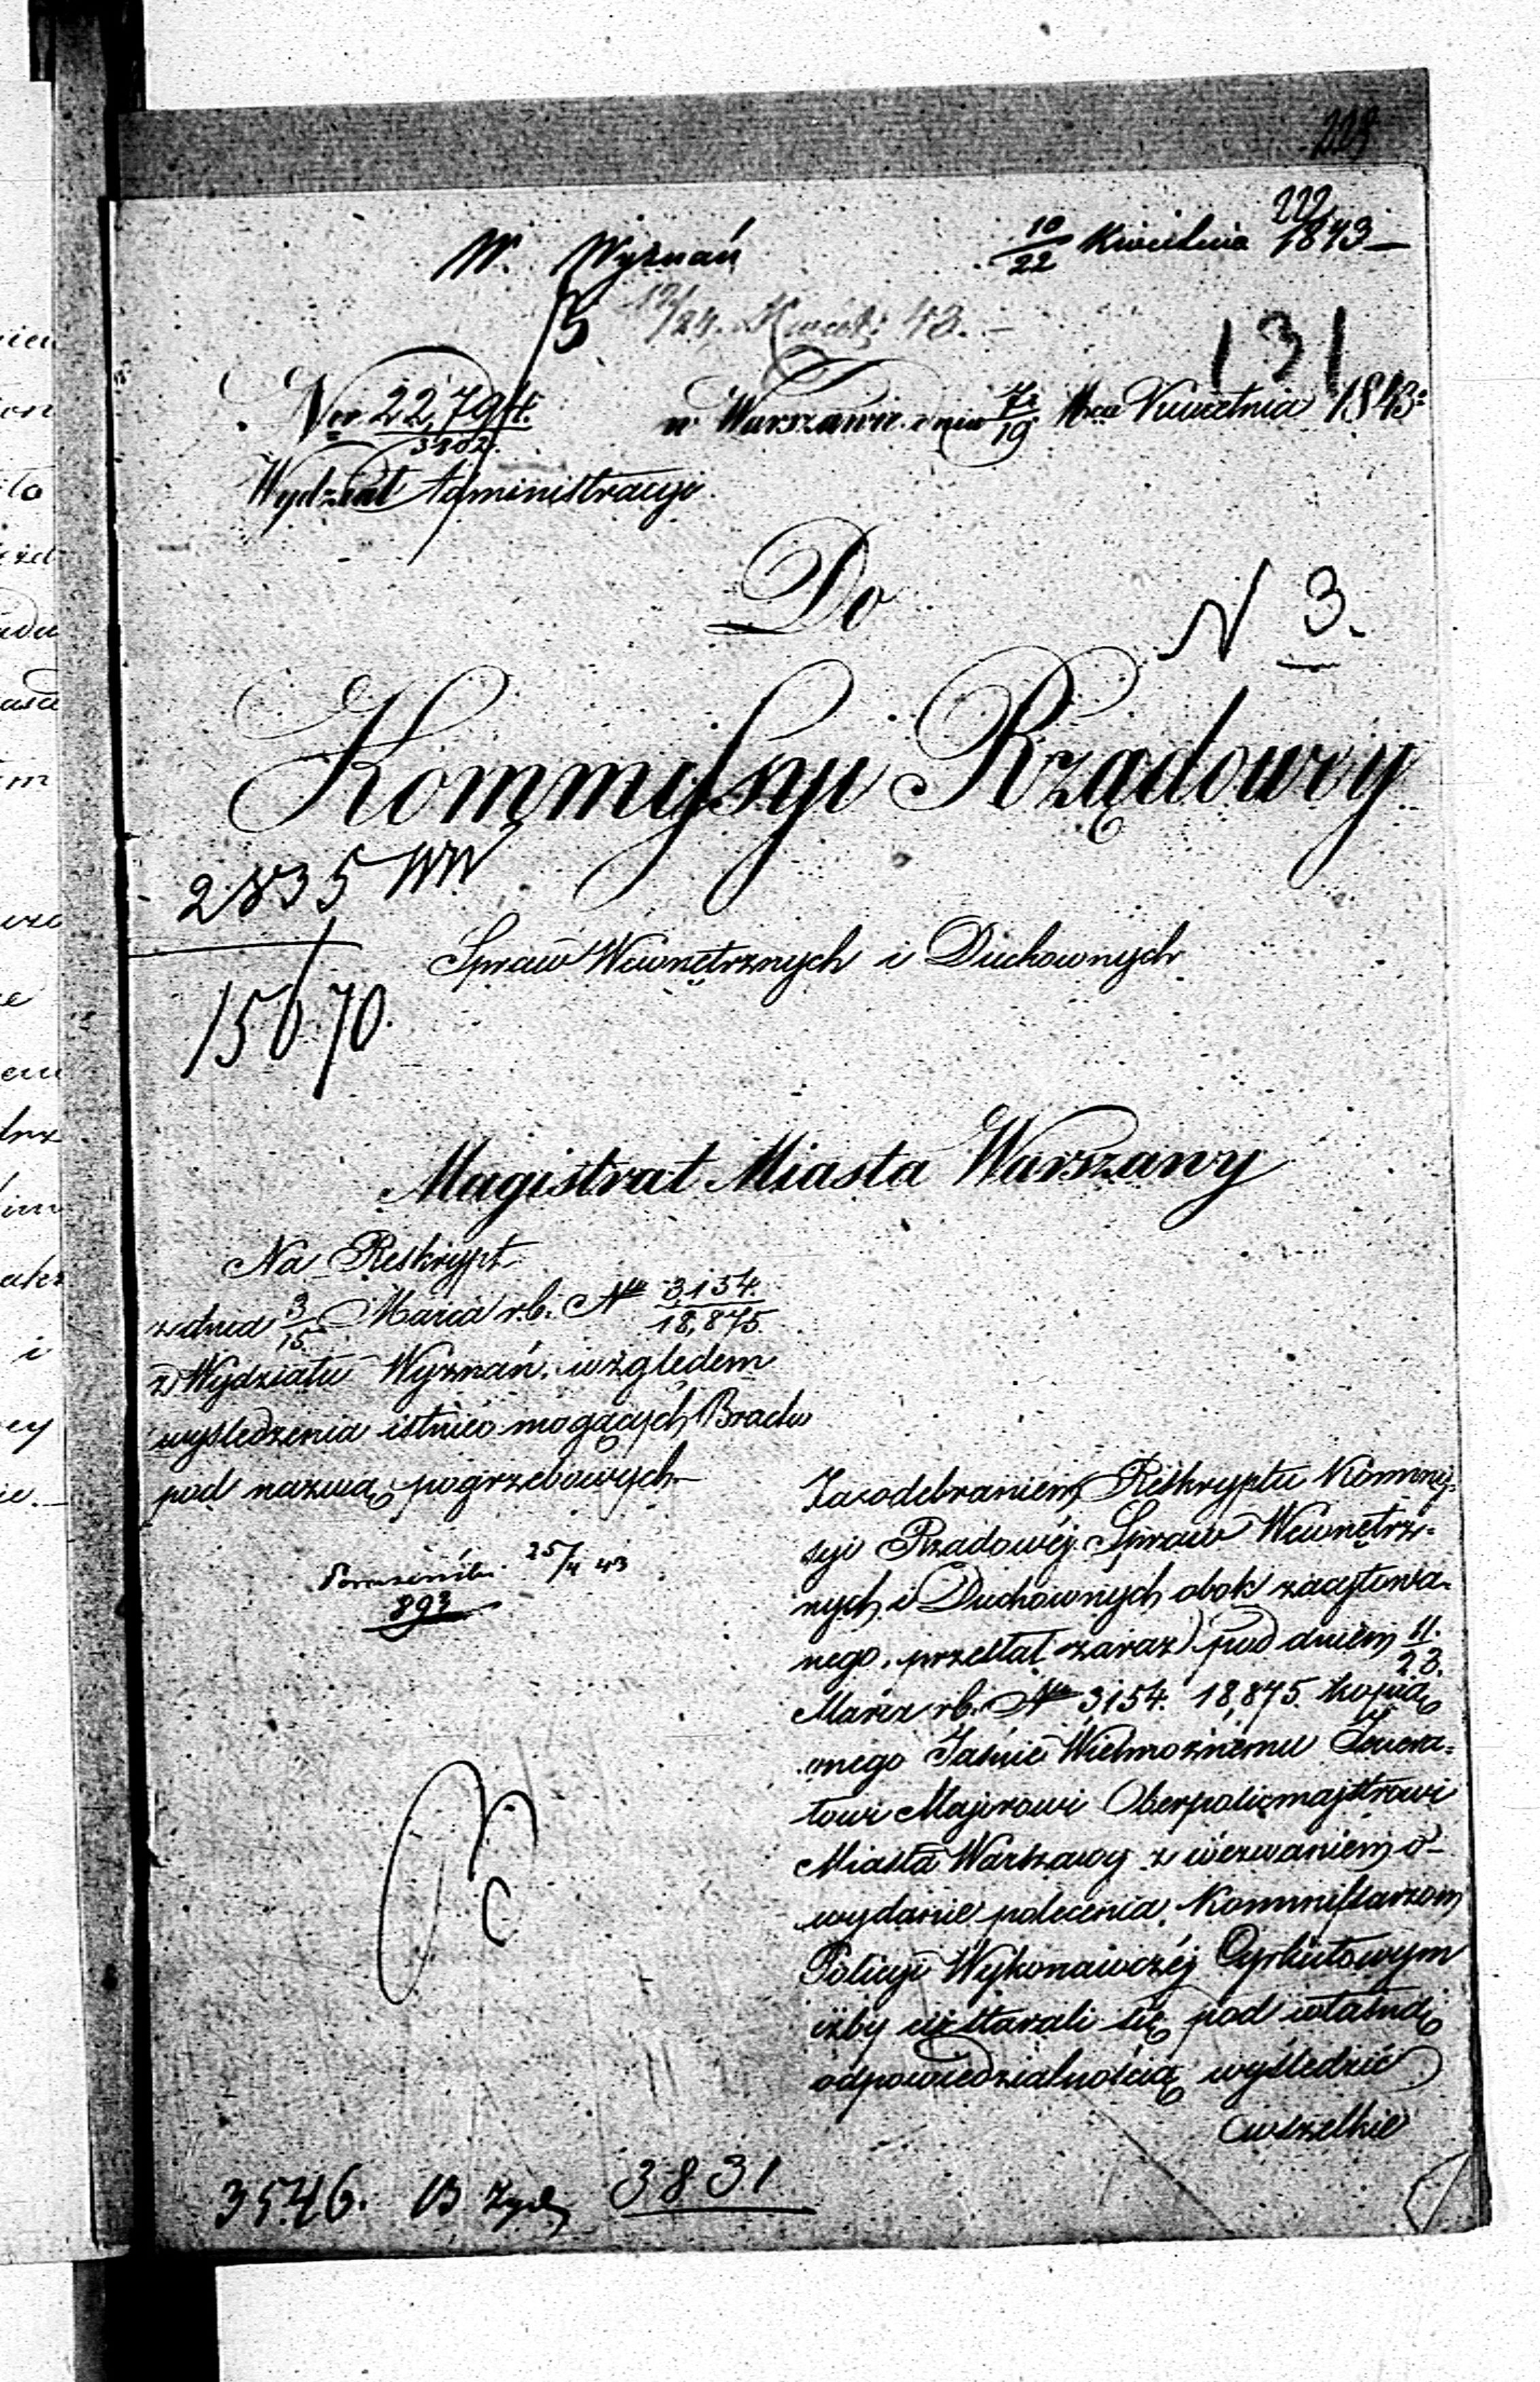 228
222
W. Wyznań 10/22 Kwietnia 1843
B 12/24. Kwiet: 43.
131
Nro 22,794./3102. w Warszawie dnia 7/19 Mca Kwietnia 1843.
Wydział Administracyi
Do
N 3.
Kommissyi Rządowey
2835 WW
15670.
Spraw Wewnętrznych i Duchownych
Magistrat Miasta Warszawy
Na Reskrypt
z dnia 3/15 Marca r.b. Nr 3154./18,875.
z Wydziału Wyznań, względem
wyśledzenia istnieć mogących Bractw
pod nazwą pogrzebowych
25/4 43
893
Za odebraniem Reskryptu Kommis-
syi Rządowéj Spraw Wewnętrz-
nych i Duchownych obok zacytowa-
nego, przesłał zaraz pod dniem 11./23.
Marca rb. Nr 3,154. 18,875. kopią
onego Jaśnie Wielmożnemu Jenera-
łowi Majorowi Oberpolicmajstrowi
Miasta Warszawy z wezwaniem o
wydanie polecenia, Kommissarzom
Policyi Wykonawczéj Cyrkułowym
iżby się starali się pod własną
odpowiedzialnością wyśledzić
wszelkie
3546. B Żyd 3831